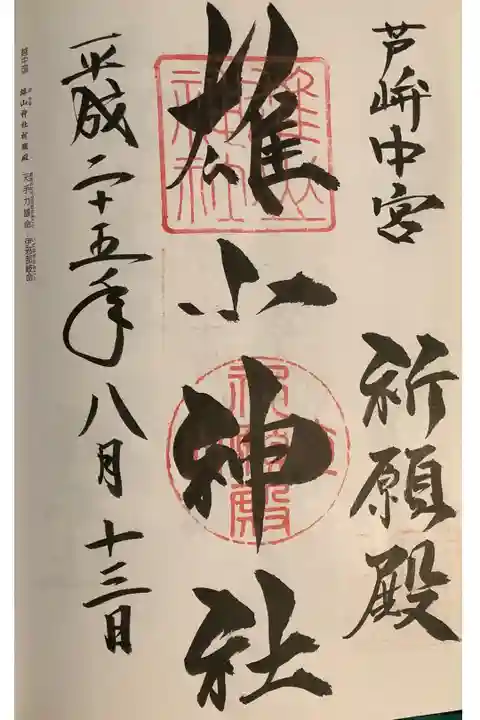 芦峅中宮
祈願殿
雄山神社
平成二十五年八月十三日
越中国 雄山神社祈願殿
天手力雄命 伊邪那岐命